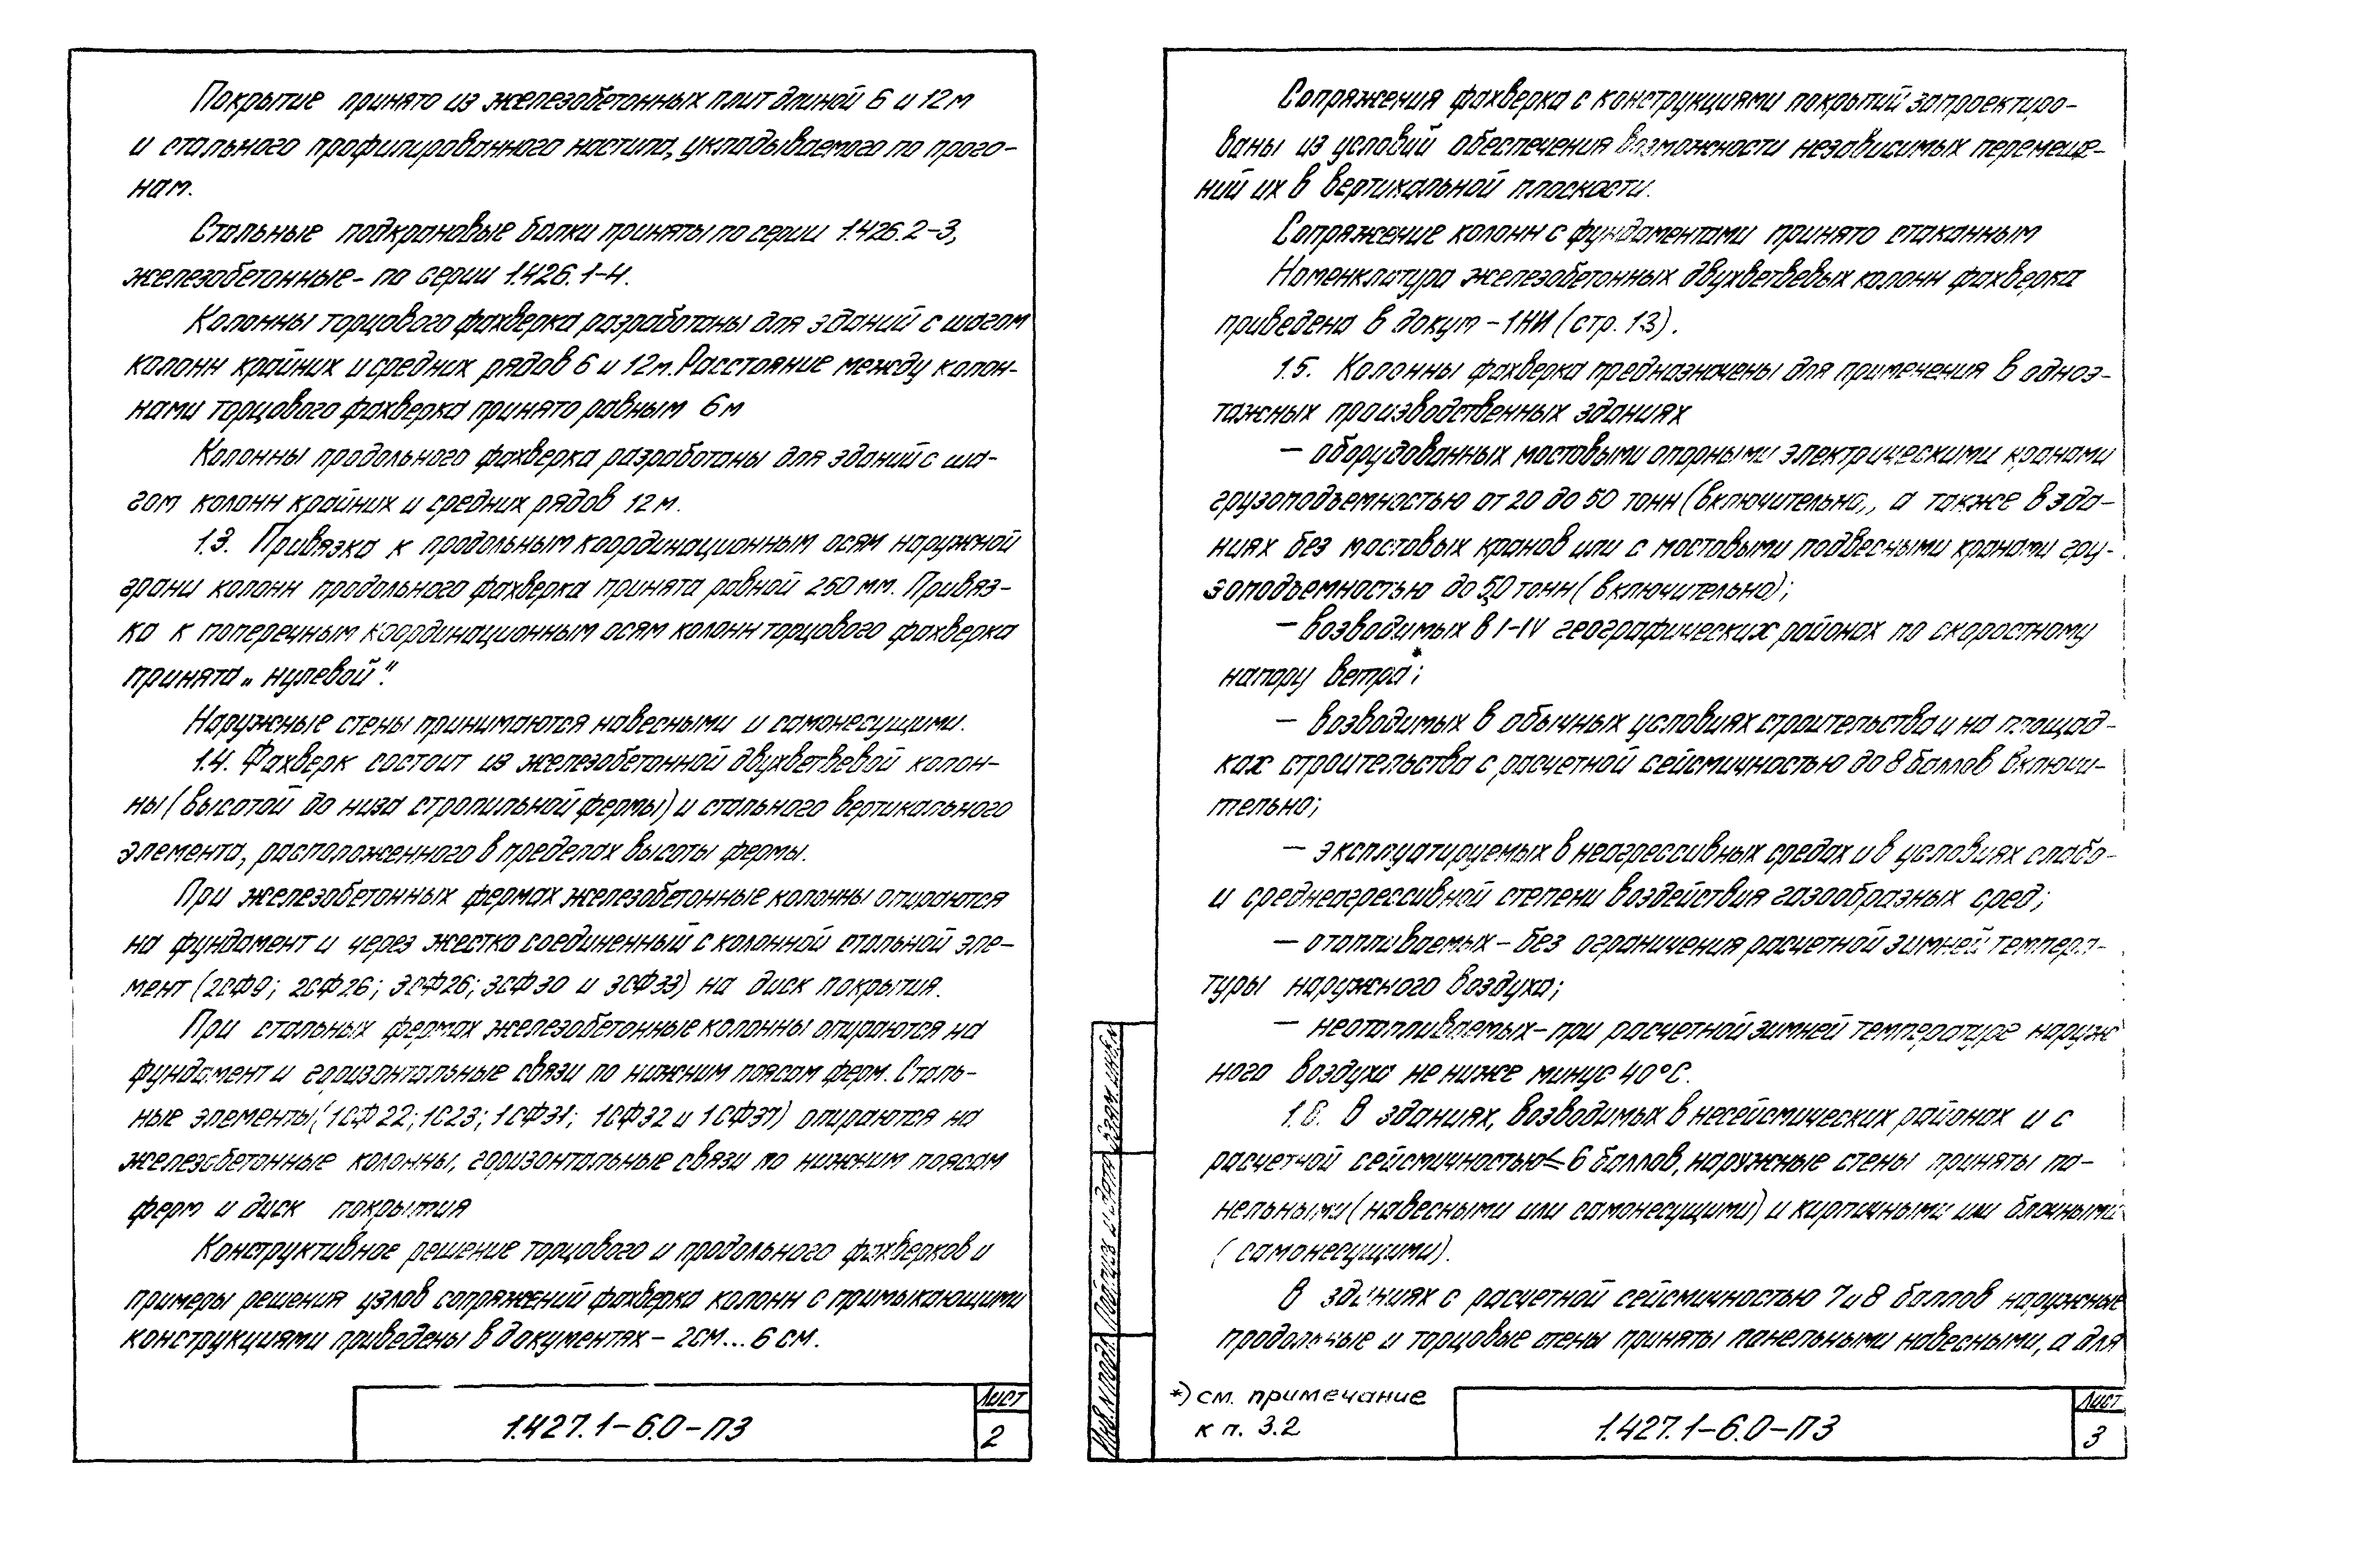 Покрытие принято из железобетонных плит длиной 6 и 12м
и стального профилированного настила, укладываемого по прого-
нам.
Стальные подкрановые балки приняты по серии 1.426.2-3,
железобетонные- по серии 1.426.1-4.
Колонны торцового фахверка разработаны для зданий с шагом
колонн крайних и средних рядов 6 и 12м. Расстояние между колон-
нами торцового фахверка принято равным 6м
Колонны продольного фахверка разработаны для зданий с ша-
гом колонн крайних и средних рядов 12м.
1.3. Привязка к продольным координационным осям наружной
грани колонн продольного фахверка принята равной 250 мм. Привяз-
ка к поперечным координационным осям колонн торцового фахверка
принята „нулевой".
Наружные стены принимаются навесными и самонесущими.
1.4. Фахверк состоит из железобетонной двухветвевой колон-
ны (высотой до низа стропильной фермы) и стального вертикального
элемента, расположенного в пределах высоты фермы.
При железобетонных фермах железобетонные колонны опираются
на фундамент и через жестко соединенный с колонной стальной эле-
мент (2СФ9; 2СФ26; 3СФ26; 3СФ30 и 3СФ33) на диск покрытия.
При стальных фермах железобетонные колонны опираются на
фундамент и горизонтальные связи по нижним поясам ферм. Сталь-
ные элементы (1СФ22; 1С23; 1СФ31; 1СФ32 и 1СФ37) опираются на
железобетонные колонны, горизонтальные связи по нижним поясам
ферм и диск покрытия
Конструктивное решение торцового и продольного фахверков и
примеры решения узлов сопряжений фахверка колонн с примыкающими
конструкциями приведены в документах - 2СМ...6СМ.
1.427.1-6.0-ПЗ
Лист
2
Сопряжения фахверка с конструкциями покрытий запроектиро-
ваны из условий обеспечения возможности независимых перемеще-
ний их в вертикальной плоскости.
Сопряжение колонн с фундаментами принято стаканным
Номенклатура железобетонных двухветвевых колонн фахверка
приведена в докум -1НИ (стр. 13).
1.5. Колонны фахверка предназначены для применения в одноэ-
тажных производственных зданиях
- оборудованных мостовыми опорными электрическими кранами
грузоподъемностью от 20 до 50 тонн (включительно,, а также в зда-
ниях без мостовых кранов или с мостовыми подвесными кранами гру-
зоподъемностью до 5,0 тонн (включительно);
- возводимых в I-IV географических районах по скоростному
напору ветра*;
- возводимых в обычных условиях строительства и на площад-
ках строительства с расчетной сейсмичностью до 8 баллов включи-
тельно;
- эксплуатируемых в неагрессивных средах и в условиях слабо-
и среднеагрессивной степени воздействия газообразных сред;
- отапливаемых - без ограничения расчетной зимней темпера-
туры наружного воздуха;
- неотапливаемых - при расчетной зимней температуре наруж
ного воздуха не ниже минус 40°С.
1.6. В зданиях, возводимых в несейсмических районах и с
расчетной сейсмичностью ≤ 6 баллов, наружные стены приняты па-
нельными (навесными или самонесущими) и кирпичными или блочными
(самонесущими).
В зданиях с расчетной сейсмичностью 7 и 8 баллов наружные
продольные и торцовые стены приняты панельными навесными, а для
*) см. примечание
к п. 3.2
Взам. инв. №
Подпись и дата
Инв. № подл.
1.427.1-6.0-ПЗ
Лист
3